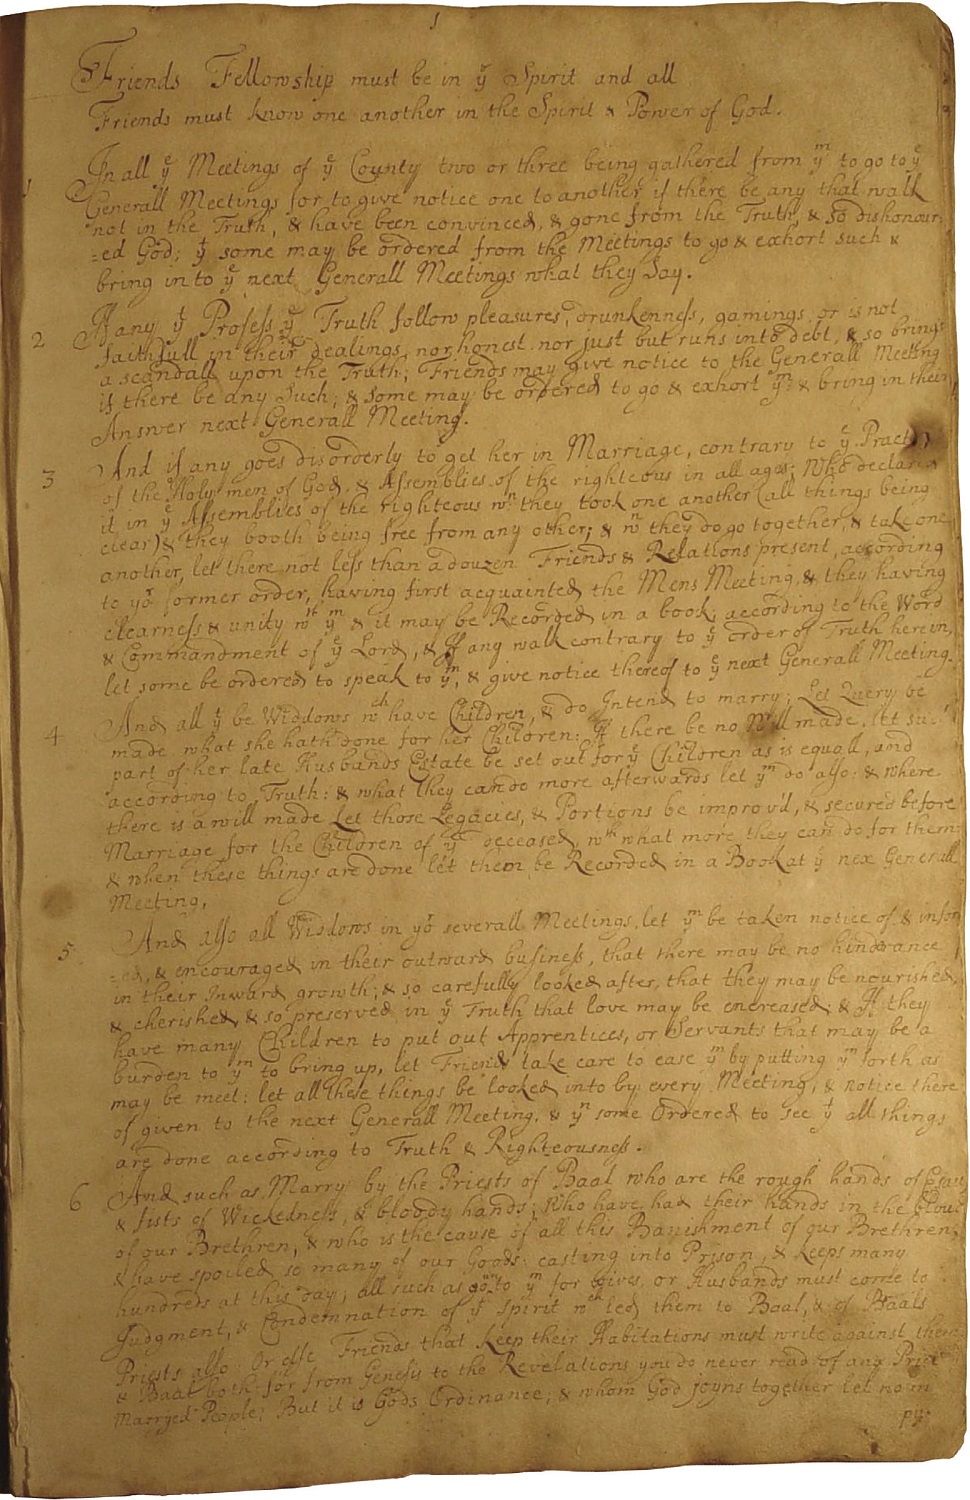 1
Friends Fellowship must be in yͤ Spirit and all
Friends must know one another in the Spirit & Power of God.
1 In all yͤ Meetings of yͤ County two or three being gathered from yͫ to go to yͤ
Generall Meetings for to give notice one to another if there be any that walk
not in the Truth, & have been convinced, & gone from the Truth, & so dishonour:
=ed God; yͭ some may be ordered from the Meetings to go & exhort such &
bring in to yͤ next Generall Meetings what they Say.
2 If any yͭ Profess yͤ Truth follow pleasures, drunkenness, gamings, or is not
faithfull in their dealings, nor honest nor just but runs into debt, & so brings
a scandall upon the Truth; Friends may give notice to the Generall Meeting
if there be any Such; & some may be ordered to go & exhort yͫ & bring in their
Answer next Generall Meeting.
3 And if any goes disorderly to get her in Marriage, contrary to yͤ
of the Holy men of God, & Assemblies of the righteous in all ages; Who declared
it in yͤ Assemblies of the righteous wⁿ they took one another (all things being
clear) & they booth being free from any other; & wⁿ they do go together, & take one
another, let there not less than a douzen Friends & Relations present, according
to yoʳ former order, having first acquainted the Mens Meeting, & they having
clearness & unity wͭͪ yͫ & it may be Recorded in a book, according to the Word
& Commandment of yͤ Lord, & If any walk contrary to yͤ order of Truth herein,
let some be ordered to speak to yͫ, & give notice thereof to yͤ next Generall Meeting.
4 And all yͭ be Widdows wͨͪ have Children, & do Intend to marry; Let Query be
made what she hath done for her Children: If there be no Will made, let such
part of her late Husbands Estate be set out for yͤ Children as is equall, and
according to Truth: & what they can do more afterwards let yͫ do also: & where
there is a will made Let those Legacies, & Portions be improv'd, & secured before
Marriage for the Children of yͤ deceased, wͭͪ what more they can do for them:
& when these things are done let them be Recorded in a Book at yͤ nex Generall
Meeting.
5 And also all Widdows in yoʳ severall Meetings, let yͫ be taken notice of & inform
=ed, & encouraged in their outward business, that there may be no hinderance
in their Inward growth; & so carefully looked after, that they may be nourished,
& cherished, & so preserved in yͤ Truth that love may be encreased; & If they
have many Children to put out Apprentices, or Servants that may be a
burden to yͫ to bring up, let Friends take care to ease yͫ by putting yͫ forth as
may be meet: let all these things be looked into by every Meeting, & notice there
of given to the next Generall Meeting, & yⁿ some Ordered to see yͭ all things
are done according to Truth & Righteousness.
6 And such as Marry by the Priests of Baal who are the rough hands of Esau
& fists of Wickedness, & bloody hands; Who have had their hands in the bloud
of our Brethren, & who is the cause of all this Banishment of our Brethren,
& have spoiled so many of our Goods: casting into Prison, & keeps many
hundreds at this day; all such as go to yͫ for Wives, or Husbands must come to
Judgment, & Condemnation of yͭ Spirit wͨͪ led them to Baal, & of Baals
Priests also Or else Friends that keep their Habitations must write against them
& Baal both: for from Genesis to the Revelations you do never read of any Priest
Marryed People; But it is Gods Ordinance; & whom God joyns together let no m